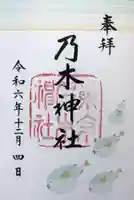 奉拝
乃木神社
令和六年十二月四日